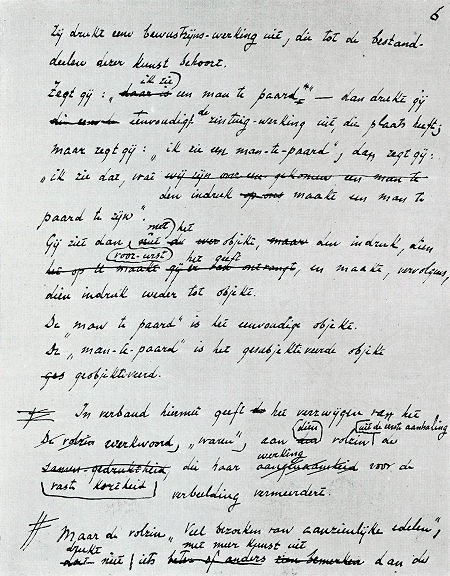 6
Zij drukt eene bewustzijns-werking uit, die tot de bestand-
deelen dezer kunst behoort.
ik zie
Zegt gij: „daar is een man te paard" — dan drukt gij
die eenvoudigst de zintuig-werking uit, die plaats heeft;
maar zegt gij: „ik zie een man-te-paard", dan zegt gij:
„ik zie dat, wat wij zijn over een gekomen een man te
den indruk op ons maakt een man te
paard te zijn".
Gij ziet dan niet het objekt, maar den indruk, dien
voor-eerst het geeft
en maakt, vervolgens,
dien indruk weder tot objekt.
De „man te paard" is het eenvoudige objekt.
De „man-te-paard" is het gesubjektiveerde objekt
geobjektiveerd.
In verband hiermeê geeft het verzwijgen van het
dien uit de eerste aanhaling
werkwoord, „waren", aan volzin de
werking
samen-gedruktheid, die haar voor de
vaste kortheid
verbeelding vermeerdert.
Maar de volzin „Veel bezoeken van aanzienlijke edelen",
drukt met meer kunst uit
niet iets anders dan de